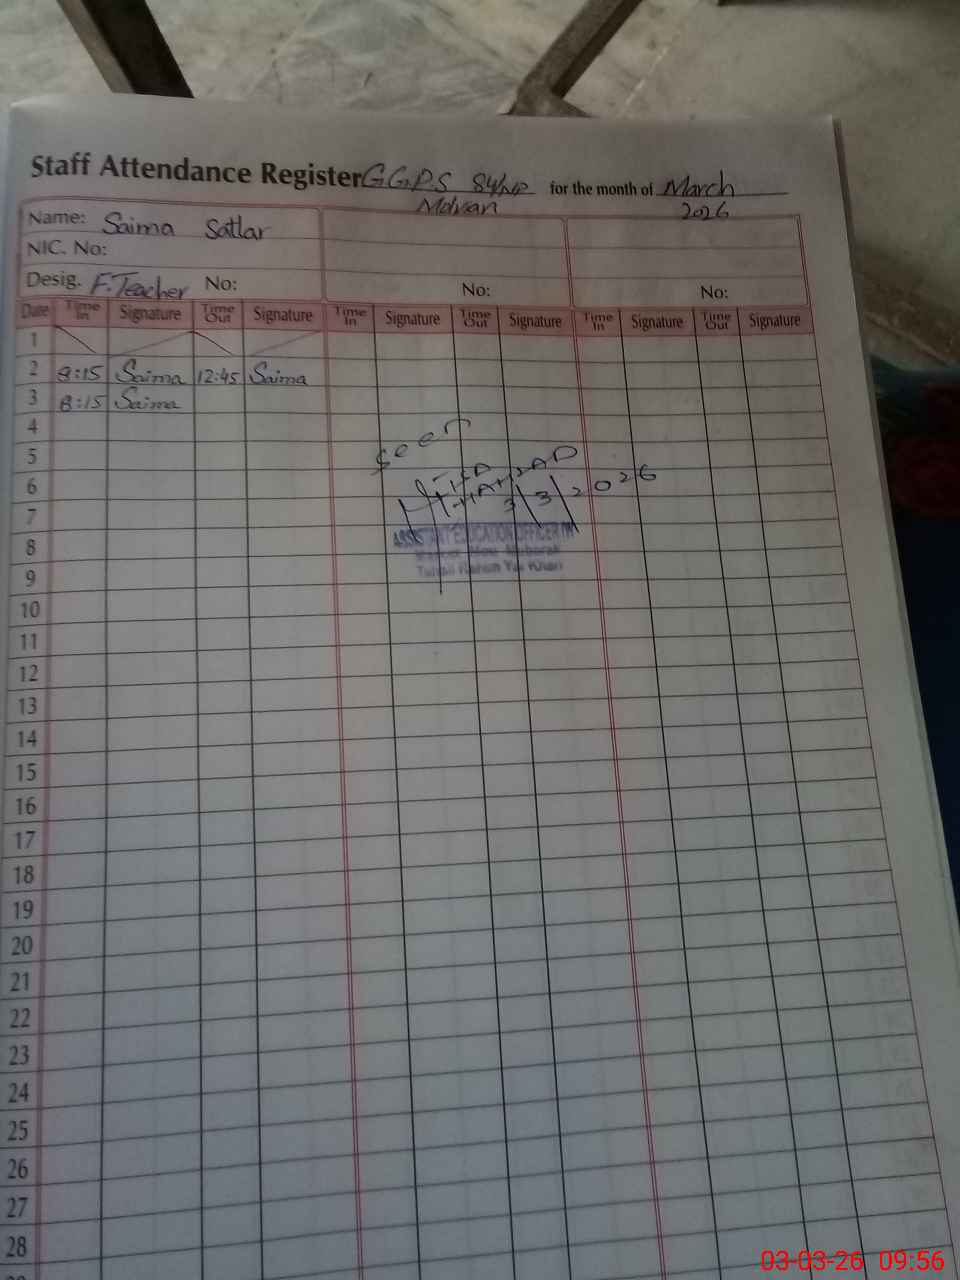 Staff Attendance Register G.G.P.S 84/NP for the month of March
2026
Name: Saima Sattar
NIC. No:
Desig. F.Teacher No: No: No:
Date Time In Signature Time Out Signature Time In Signature Time Out Signature Time In Signature Time Out Signature
1
2 8:15 Saima 12:45 Saima
3 8:15 Saima
4
5
seen
6
7
3/3/2026
8
ASSISTANT EDUCATION OFFICER
Tehsil Rahim Yar Khan
9
10
11
12
13
14
15
16
17
18
19
20
21
22
23
24
25
26
27
28
03-03-26 09:56